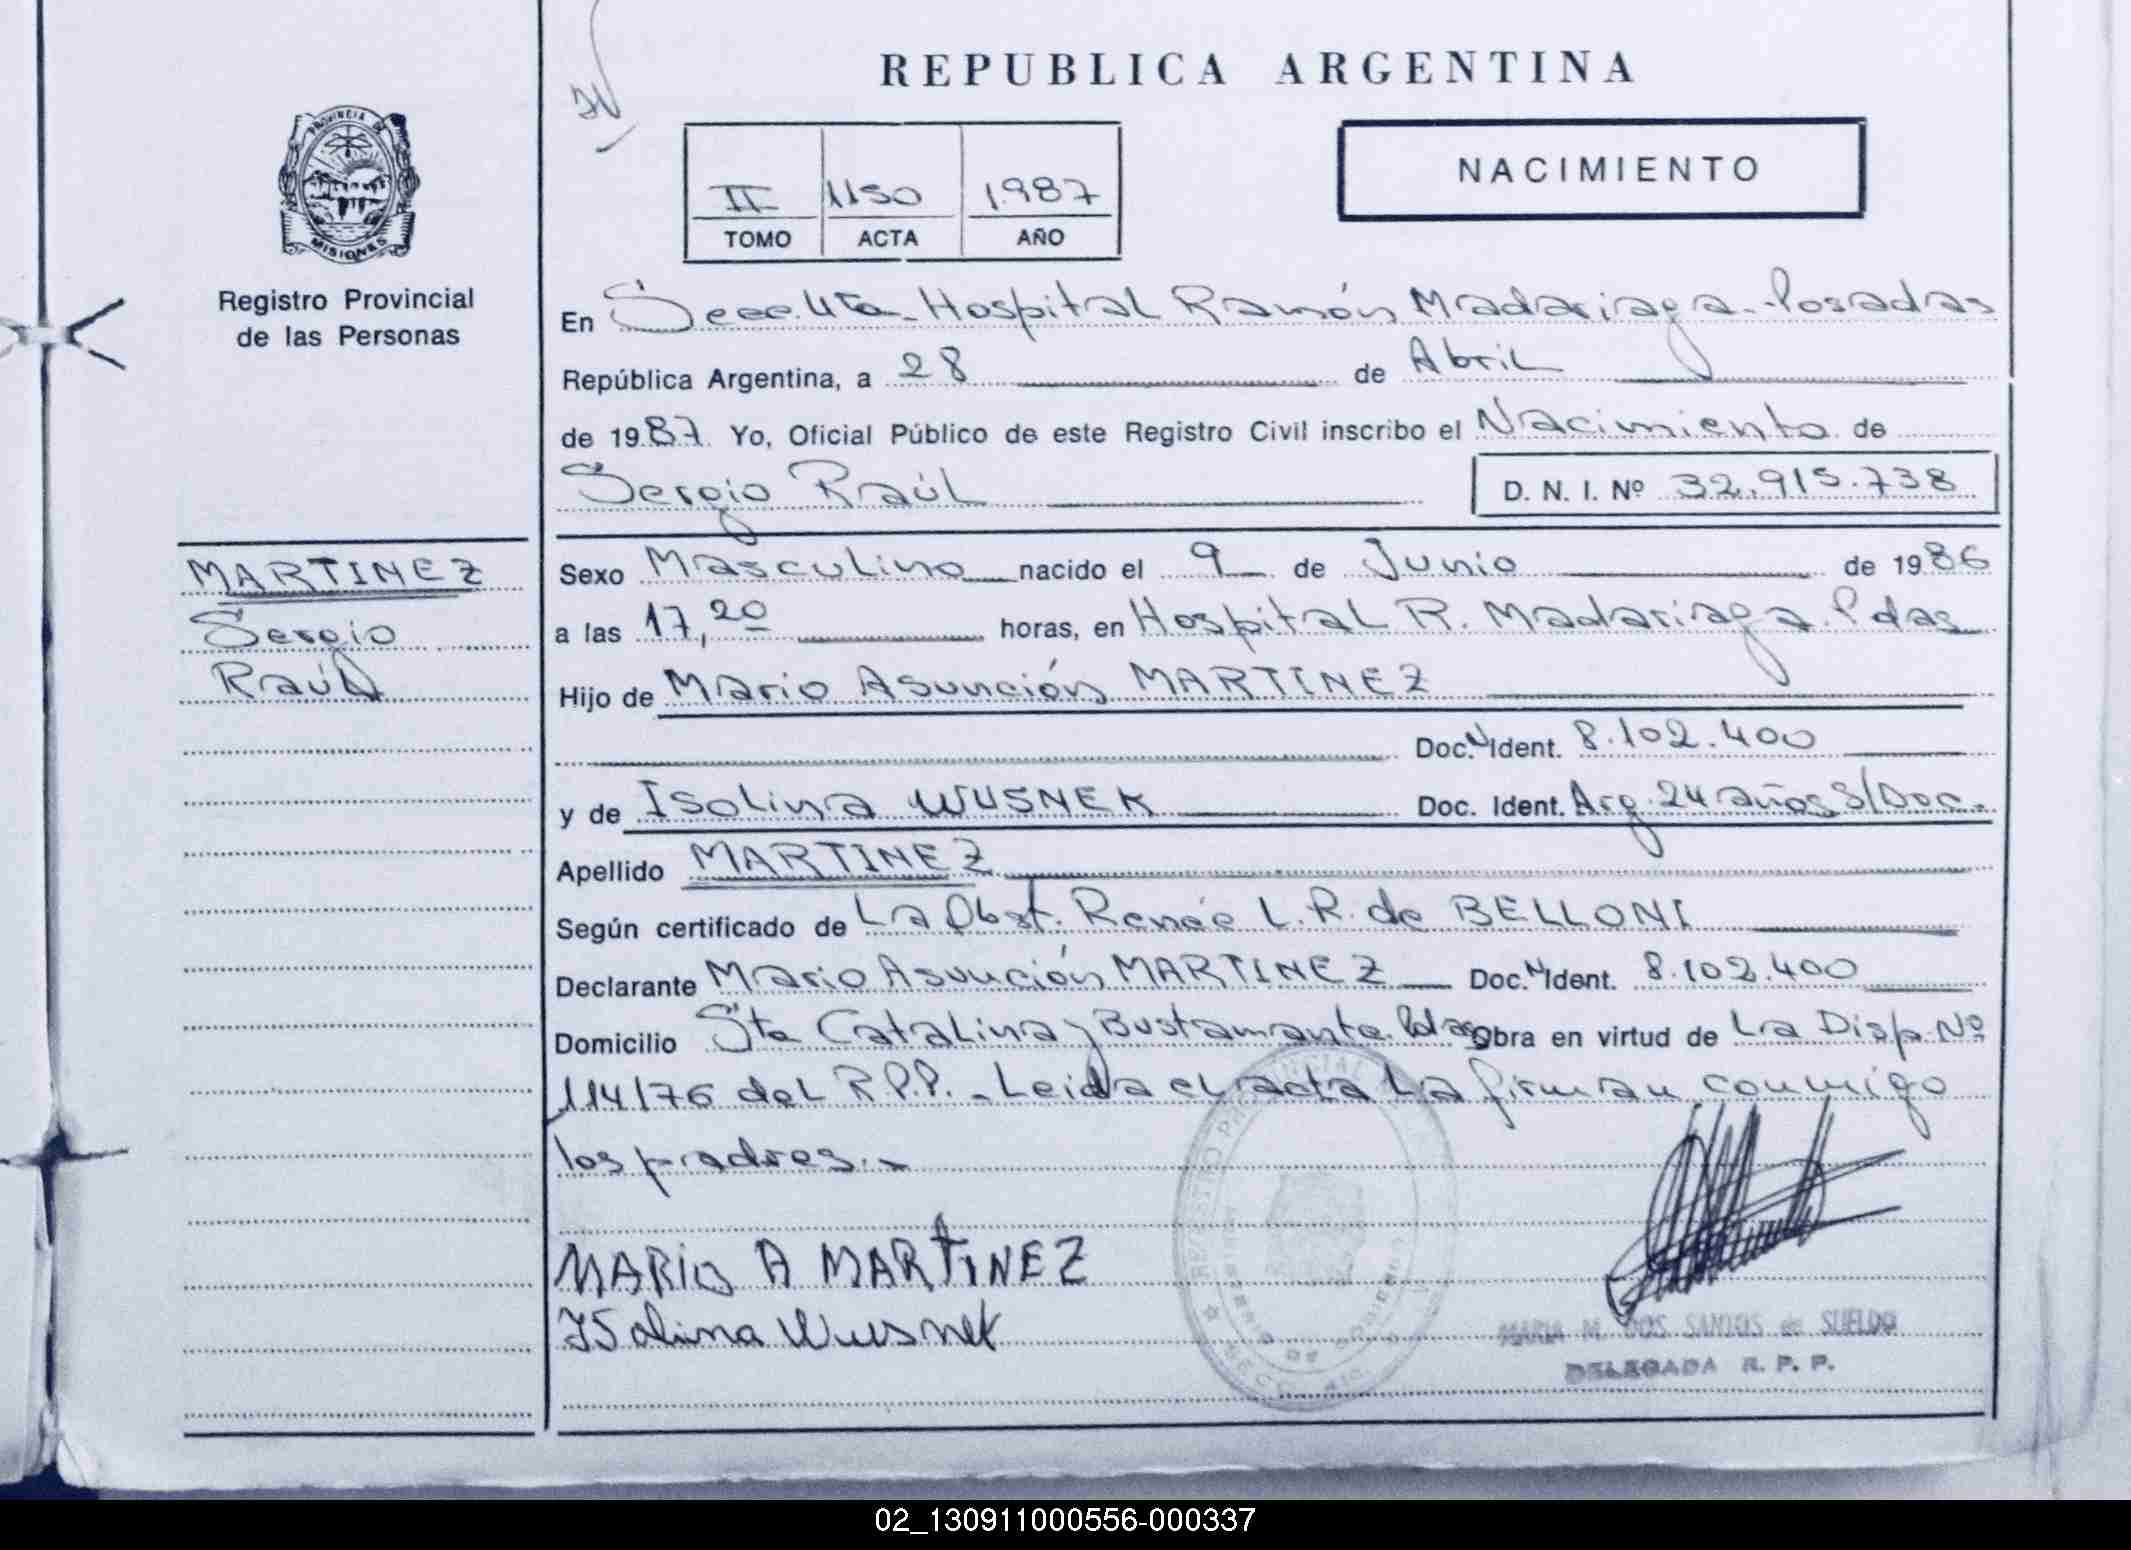 REPUBLICA ARGENTINA
PROVINCIA DE
MISIONES
Registro Provincial
de las Personas
II 1150 1.987
TOMO ACTA AÑO
NACIMIENTO
En Secc. 4ta - Hospital Ramón Madariaga - Posadas
República Argentina, a 28 de Abril
de 1987. Yo, Oficial Público de este Registro Civil inscribo el Nacimiento de
Sergio Raúl D. N. I. Nº 32.915.738
MARTINEZ
Sergio
Raúl
Sexo Masculino nacido el 9 de Junio de 1986
a las 17,20 horas, en Hospital R. Madariaga. Pdas
Hijo de Mario Asunción MARTINEZ
Doc. N Ident. 8.102.400
y de Isolina WUSNEK Doc. Ident. Arg. 24 años S/Doc.
Apellido MARTINEZ
Según certificado de La Obst. Renée L. R. de BELLONI
Declarante Mario Asunción MARTINEZ Doc. N Ident. 8.102.400
Domicilio Sta Catalina y Bustamante. Pdas Obra en virtud de La Disp. Nº
114/76 del R.P.P. - Leida el acta La firman conmigo
los padres. -
MARIO A MARTINEZ
ISolina Wusnek
REGISTRO PROVINCIAL
MARIA M. DOS SANTOS de SUELDO
DELEGADA R. P. P.
02_130911000556-000337